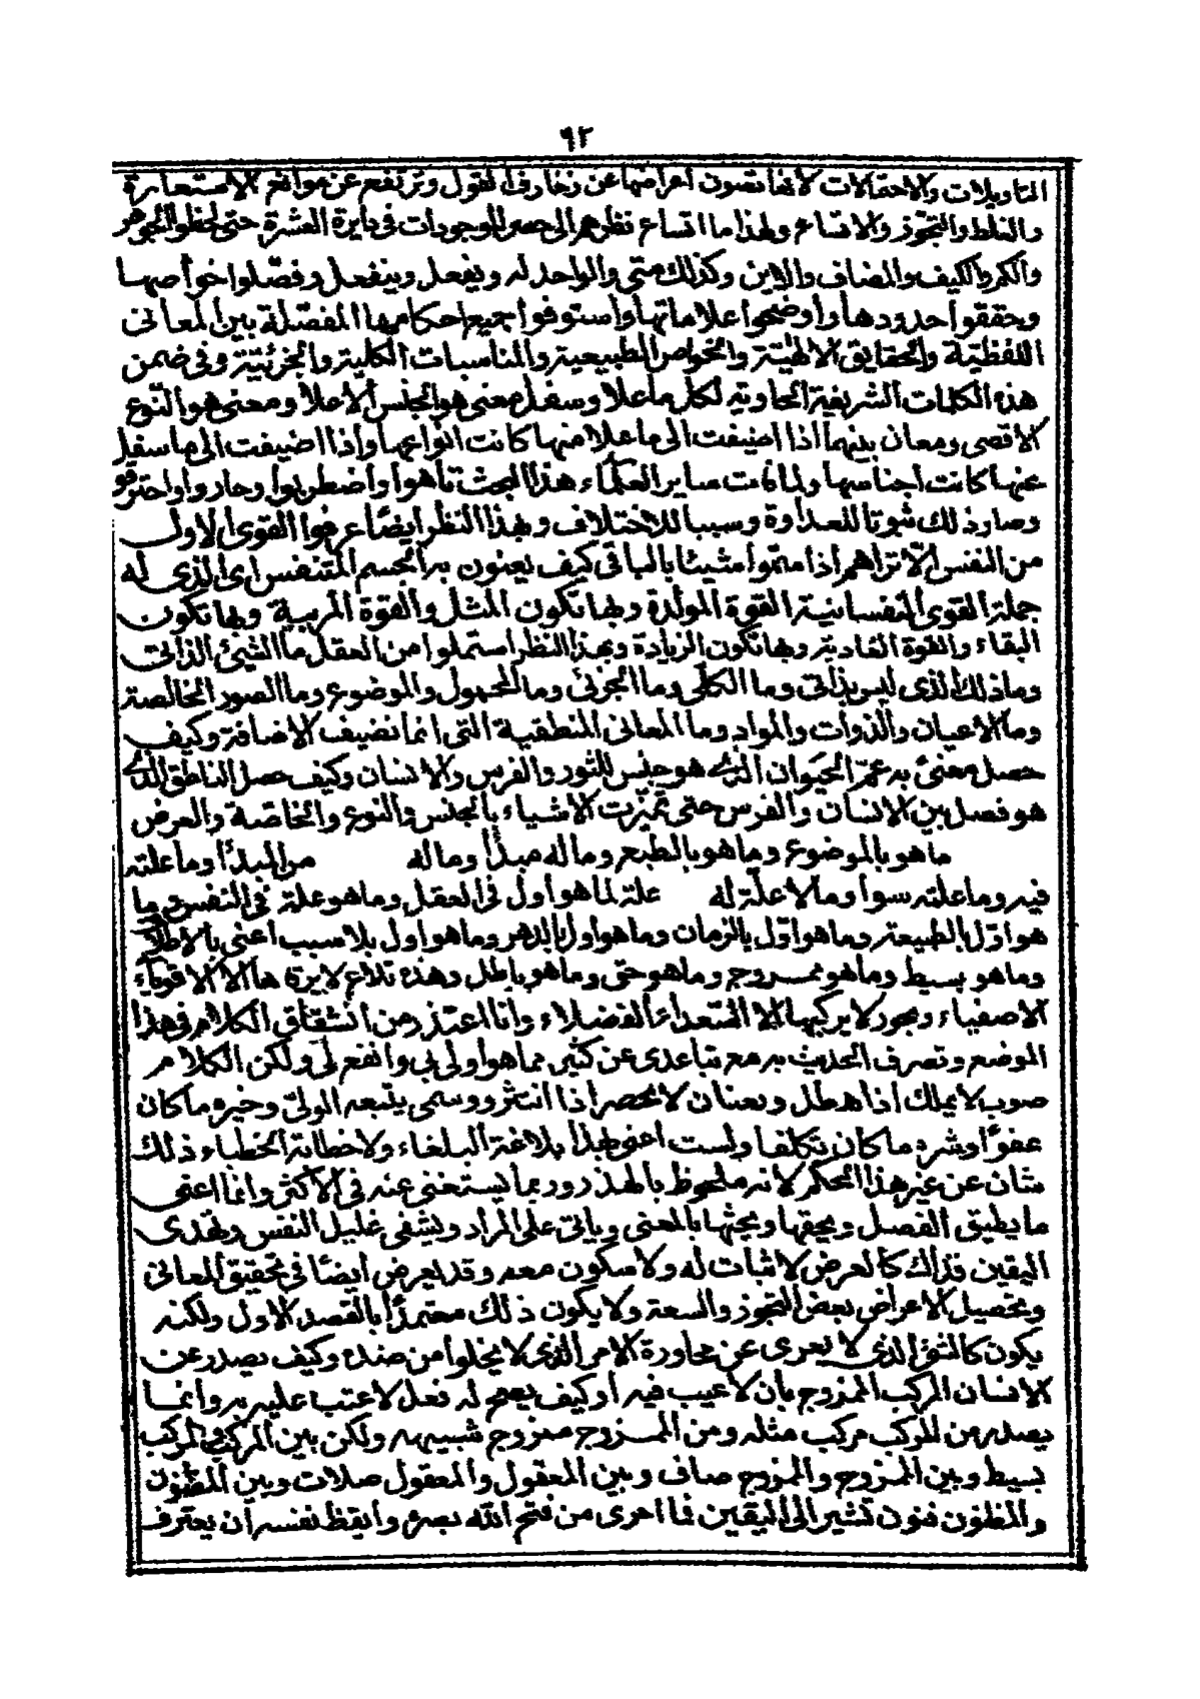 ٩٢
التاويلات والاحتمالات لانها تصون اعراضها عن زخارف القول وترتفع عن مواقع الاستعارة
والغلط والتجوز والاتساع ولهذا ما اتساع نظرهم الى حصر الموجودات في دايرة العشرة حتى لحظوا الجوهر
والكم والكيف والمضاف والاين وكذلك متى والواحد له ويفعل وينفعل وفصلوا خواصها
وحققوا حدودها واوضحوا علاماتها واستوفوا جميع احكامها المفصلة بين المعانى
اللفظية والحقايق الالهية والخواص الطبيعية والمناسبات الكلية والجزئية وفى ضمن
هذه الكلمات الشريفة الحاوية لكل ما علا وسفل معنى هو الجنس الأعلا ومعنى هو النوع
الاقصى ومعان بينهما اذا اضيفت الى ما علا منها كانت انواعها واذا اضيفت الى ما سفل
عنها كانت اجناسها ولما فات ساير العلماء هذا البحث تاهوا واضطربوا وحاروا واحترقو
وصار ذلك ثبوتا للعداوة وسببا للاختلاف وبهذا النظر ايضا عرفوا القوى الاول
من النفس الا تراهم اذا متموا مثيثا بالباقى كيف يعنون به الجسم المتنفس اى الذى له
جملة القوى النفسانية القوة المولدة وبها تكون المثل والقوة المربية وبها تكون
البقاء والقوة الغادية وبها تكون الزيادة وبهذا النظر استملوا من العقل ما الشيئ الذاتى
وما ذلك الذى ليس بذاتى وما الكلى وما الجزئى وما المحمول والموضوع وما الصور الخالصة
وما الاعيان والذوات والمواد وما المعانى المنطقية التى انما تضيف الاضافة وكيف
حصل معنى به عمّ الحيوان الذى هو جنس للثور والفرس والانسان وكيف حصل الناطق الذى
هو فصل بين الانسان والفرس حتى تميزت الاشياء بالجنس والنوع والخاصة والعرض
ما هو بالموضوع وما هو بالطبع وما له مبدأ وما له من المبدأ وما علته
فيه وما علته سوا وما لا علة له علة لما هو اول فى العقل وما هو علة فى النفس وما
هو اول بالطبيعة وما هو اول بالزمان وما هو اول بالدهر وما هو اول بلا سبب اعنى بالاطلاق
وما هو بسيط وما هو ممزوج وما هو حق وما هو باطل وهذه تلاع لا يرقاها الا الاقوياء
الاصفياء وبحور لا يركبها الا السعداء الفضلاء وانا اعتذر من انشقاق الكلام فى هذا
الموضع وتصرف الحديث به مع تباعدى عن كثير مما هو اولى بى وانفع لى ولكن الكلام
صوب لا يملك اذا هطل وبعنان لا يحصر اذا انتثر ووسمى يتبعه الولى وخيره ما كان
عفوا وشره ما كان تكلفا ولست اعنى بهذا بلاغة البلغاء ولا خطابة الخطباء ذلك
شان عن غير هذا الحكم لانه ملحوظ بالهذر وربما يستغنى عنه فى الاكثر وانما اعنى
ما يطبق الفصل ويحقها ويحثها بالمعنى وياتى على المراد ويشفى غليل النفس ويهدى
اليقين فذلك كالعرض لا ثبات له ولا سكون معه وقد يعرض ايضا فى تحقيق المعانى
وتحصيل الاعراض بعض التجوز والسعة ولا يكون ذلك معتمدا بالقصد الاول ولكنه
يكون كالشئ الذى لا يعرى عن مجاورة الامر الذى لا يخلوا من ضده وكيف يصدر عن
الانسان المركب الممزوج بان لا عيب فيه او كيف يصح له فعل لا عتب عليه به وانما
يصدر من المركب مركب مثله ومن الممزوج ممزوج شبيهه ولكن بين المركب والمركب
بسيط وبين الممزوج والممزوج صاف وبين المعقول والمعقول صلات وبين المظنون
والمظنون فنون تشير الى اليقين فما احرى من فتح الله بصره وايقظ نفسه ان يعترف